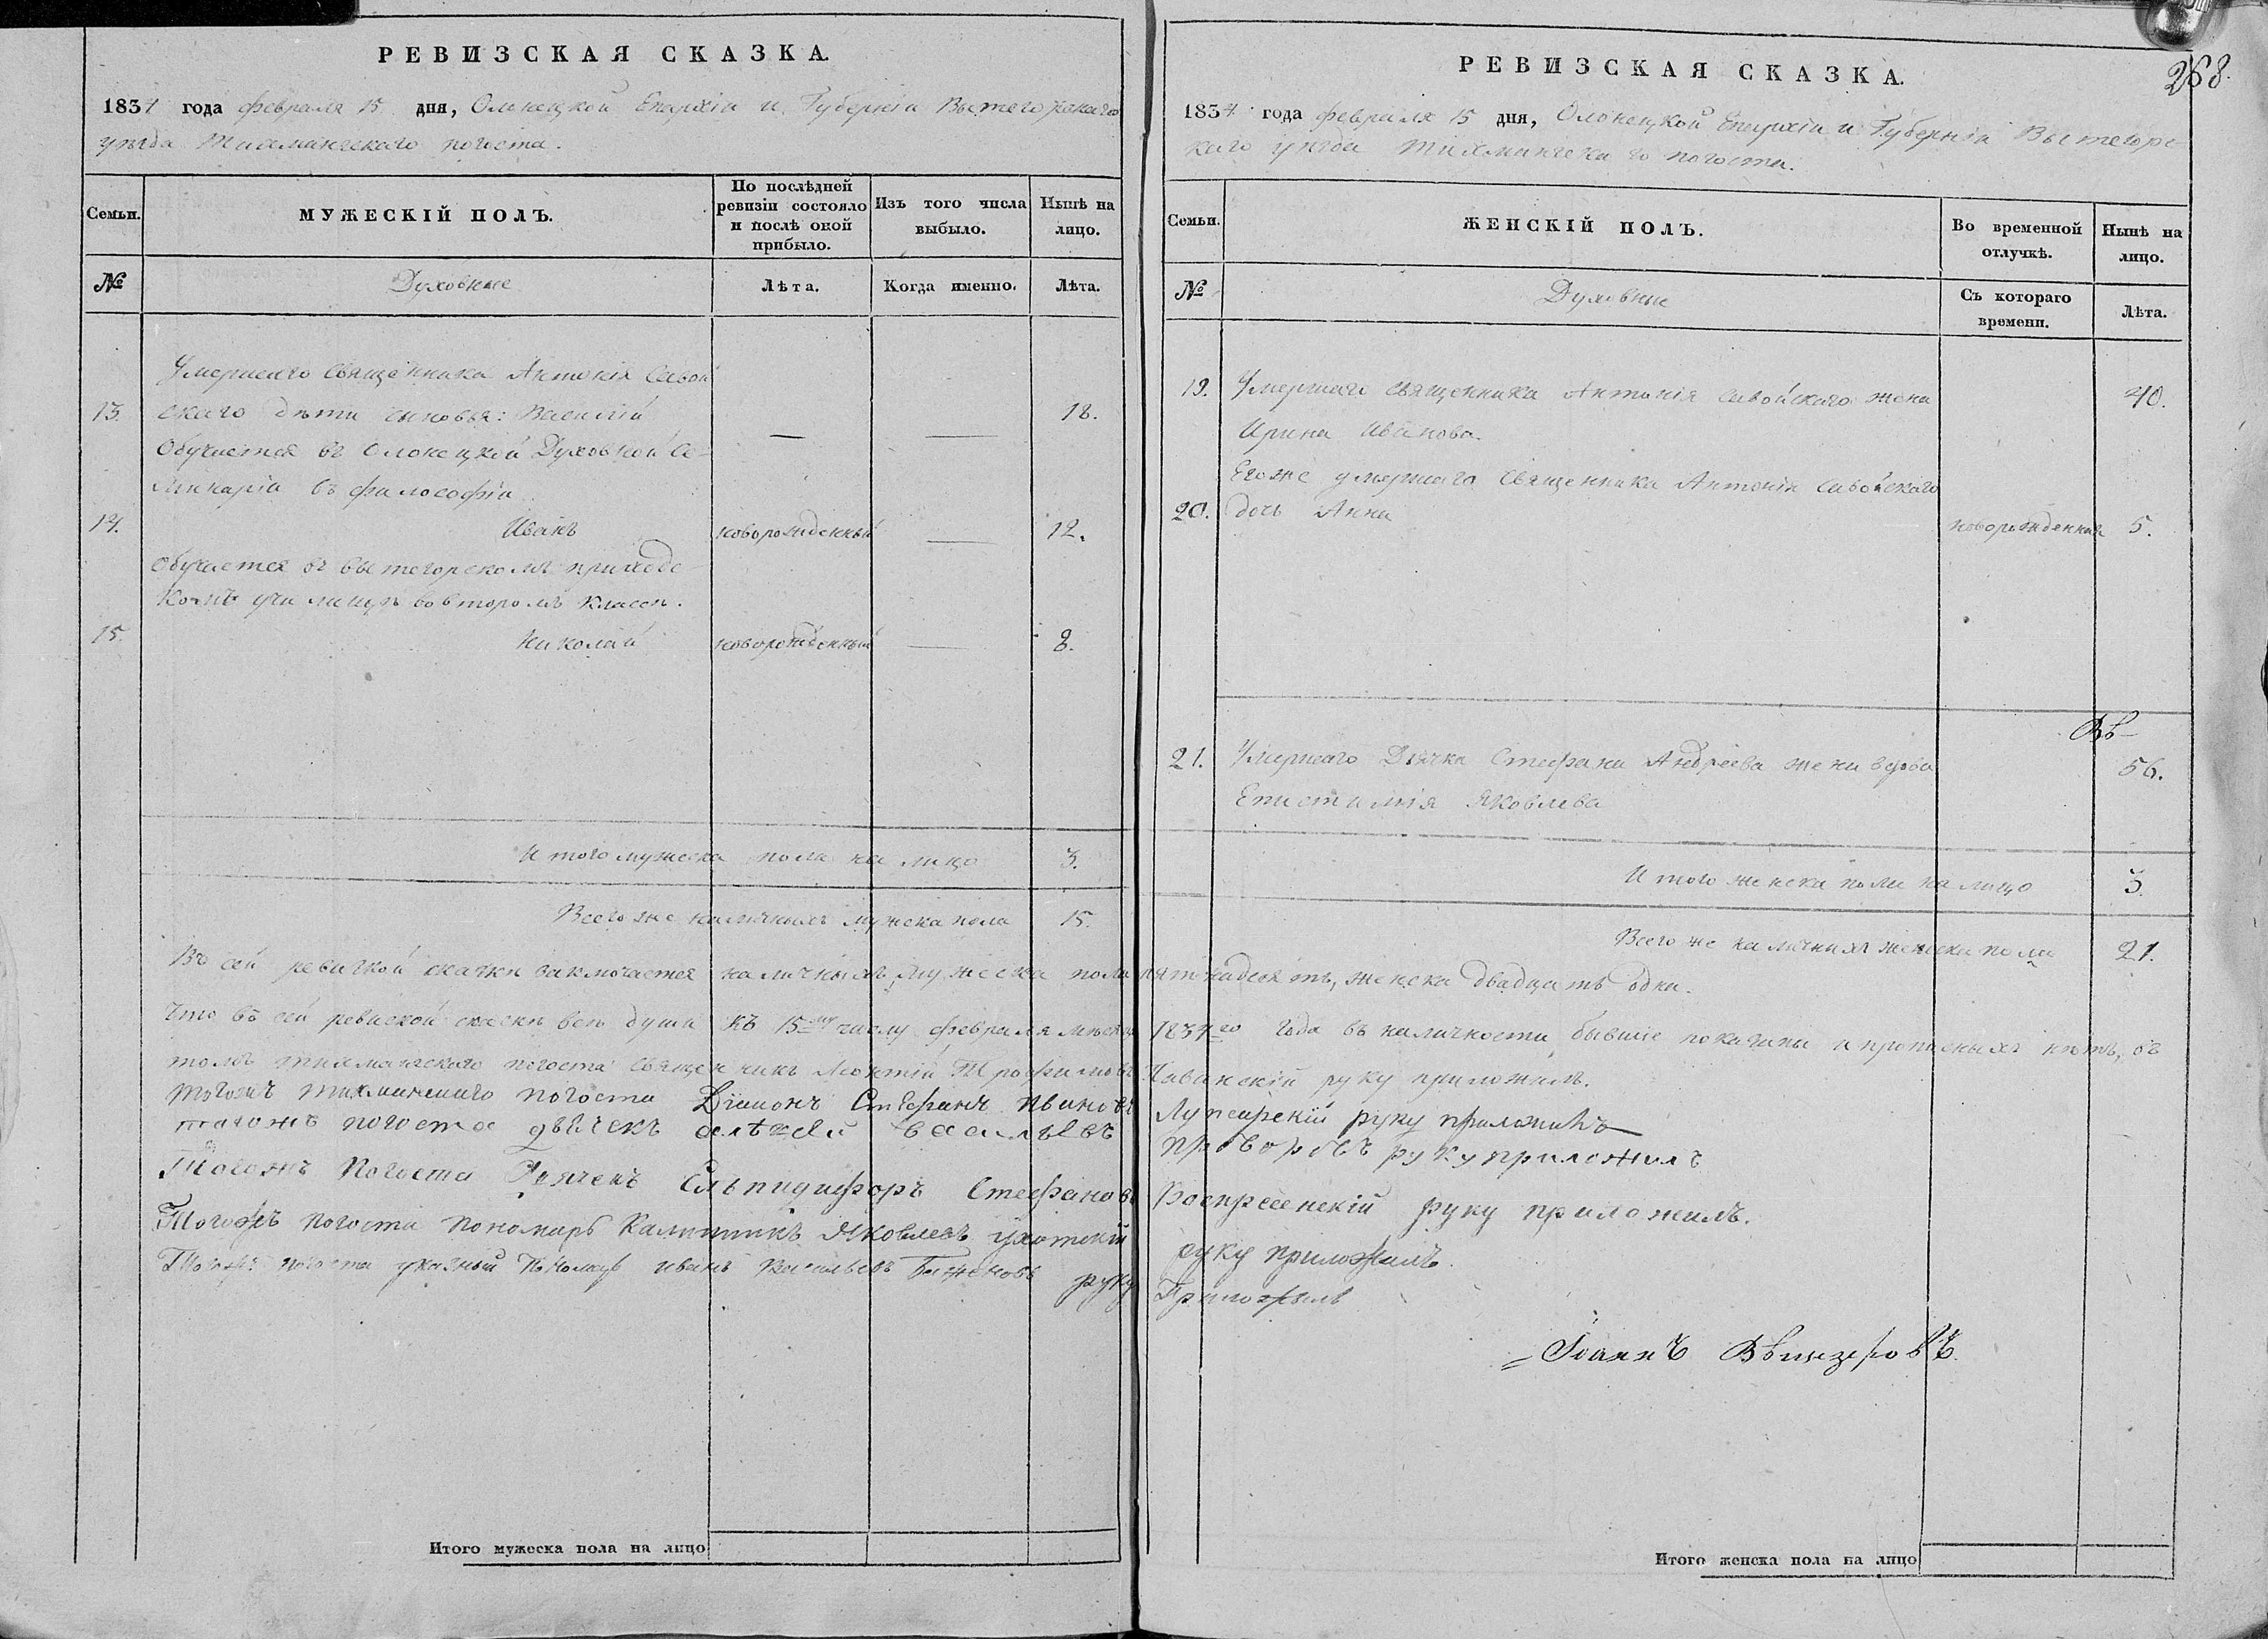 РЕВИЗСКАЯ СКАЗКА.
1834 года февраля 15 дня, Олонецкой Епархіи и Губерніи Вытегорскаго
уѣзда Тихмангскаго погоста.
Семьи.
МУЖЕСКІЙ ПОЛЪ.
По послѣдней ревизіи состояло и послѣ оной прибыло.
Изъ того числа выбыло.
Нынѣ на лицо.
№
Духовные
Лѣта.
Когда именно.
Лѣта.
Умершаго Священника Антонія Савой
13. скаго дѣти сыновья: Василій — — 18.
Обучается въ Олонецкой Духовной Се-
минаріи въ философіи
14. Иванъ новорожденный — 12.
Обучается въ вытегорскомъ приходс
комъ училищѣ во второмъ классѣ.
15. Николай новорожденный — 8.
Итого мужеска пола на лицо 3.
Всего же наличныхъ мужска пола 15.
РЕВИЗСКАЯ СКАЗКА.
268.
1834 года февраля 15 дня, Олонецкой Епархіи и Губерніи Вытегорс
каго уѣзда Тихмангскаго погоста.
Семьи.
ЖЕНСКІЙ ПОЛЪ.
Во временной отлучкѣ.
Нынѣ на лицо.
№
Духовные
Съ котораго времени.
Лѣта.
19. Умершаго священника Антонія Савойскаго жена 40.
Ирина Иванова.
Егоже умершаго Священника Антонія Савойскаго
20. дочь Анна новорожденная 5.
21. Умершаго Дьячка Стефана Андреева жена вдова 56.
Епистимія Яковлева
Итого женска пола на лицо 3
Всего же наличныхъ женска пола 21.
Въ сей ревизкой скаски заключается наличныхъ мужеска пола пятнадесять, женска двадцать одна.
Что въ сей ревиской скаскѣ всѣ души къ 15му числу февраля мѣсяца 1834го года въ наличности бывшіе показаны и прописныхъ нѣтъ, въ
томъ тихмангскаго погоста священникъ Леонтій Трофимовъ руку приложилъ.
Тогожъ тихмангскаго погоста Діаконъ Стефанъ Ивановъ руку приложилъ
тагожъ погоста дьячекъ алѣксѣй васильевъ руку приложилъ
Тогожъ Погоста Дьячекъ Ельпидифоръ Стефановъ Воскресенскій руку приложилъ.
Тогожъ погоста пономарь Калинникъ Яковлевъ ухотскій руку приложилъ.
Тогожъ погоста указный Пономарь иванъ Васильевъ Баженовъ руку Приложилъ
Іоаннъ
Итого мужеска пола на лицо
Итого женска пола на лицо